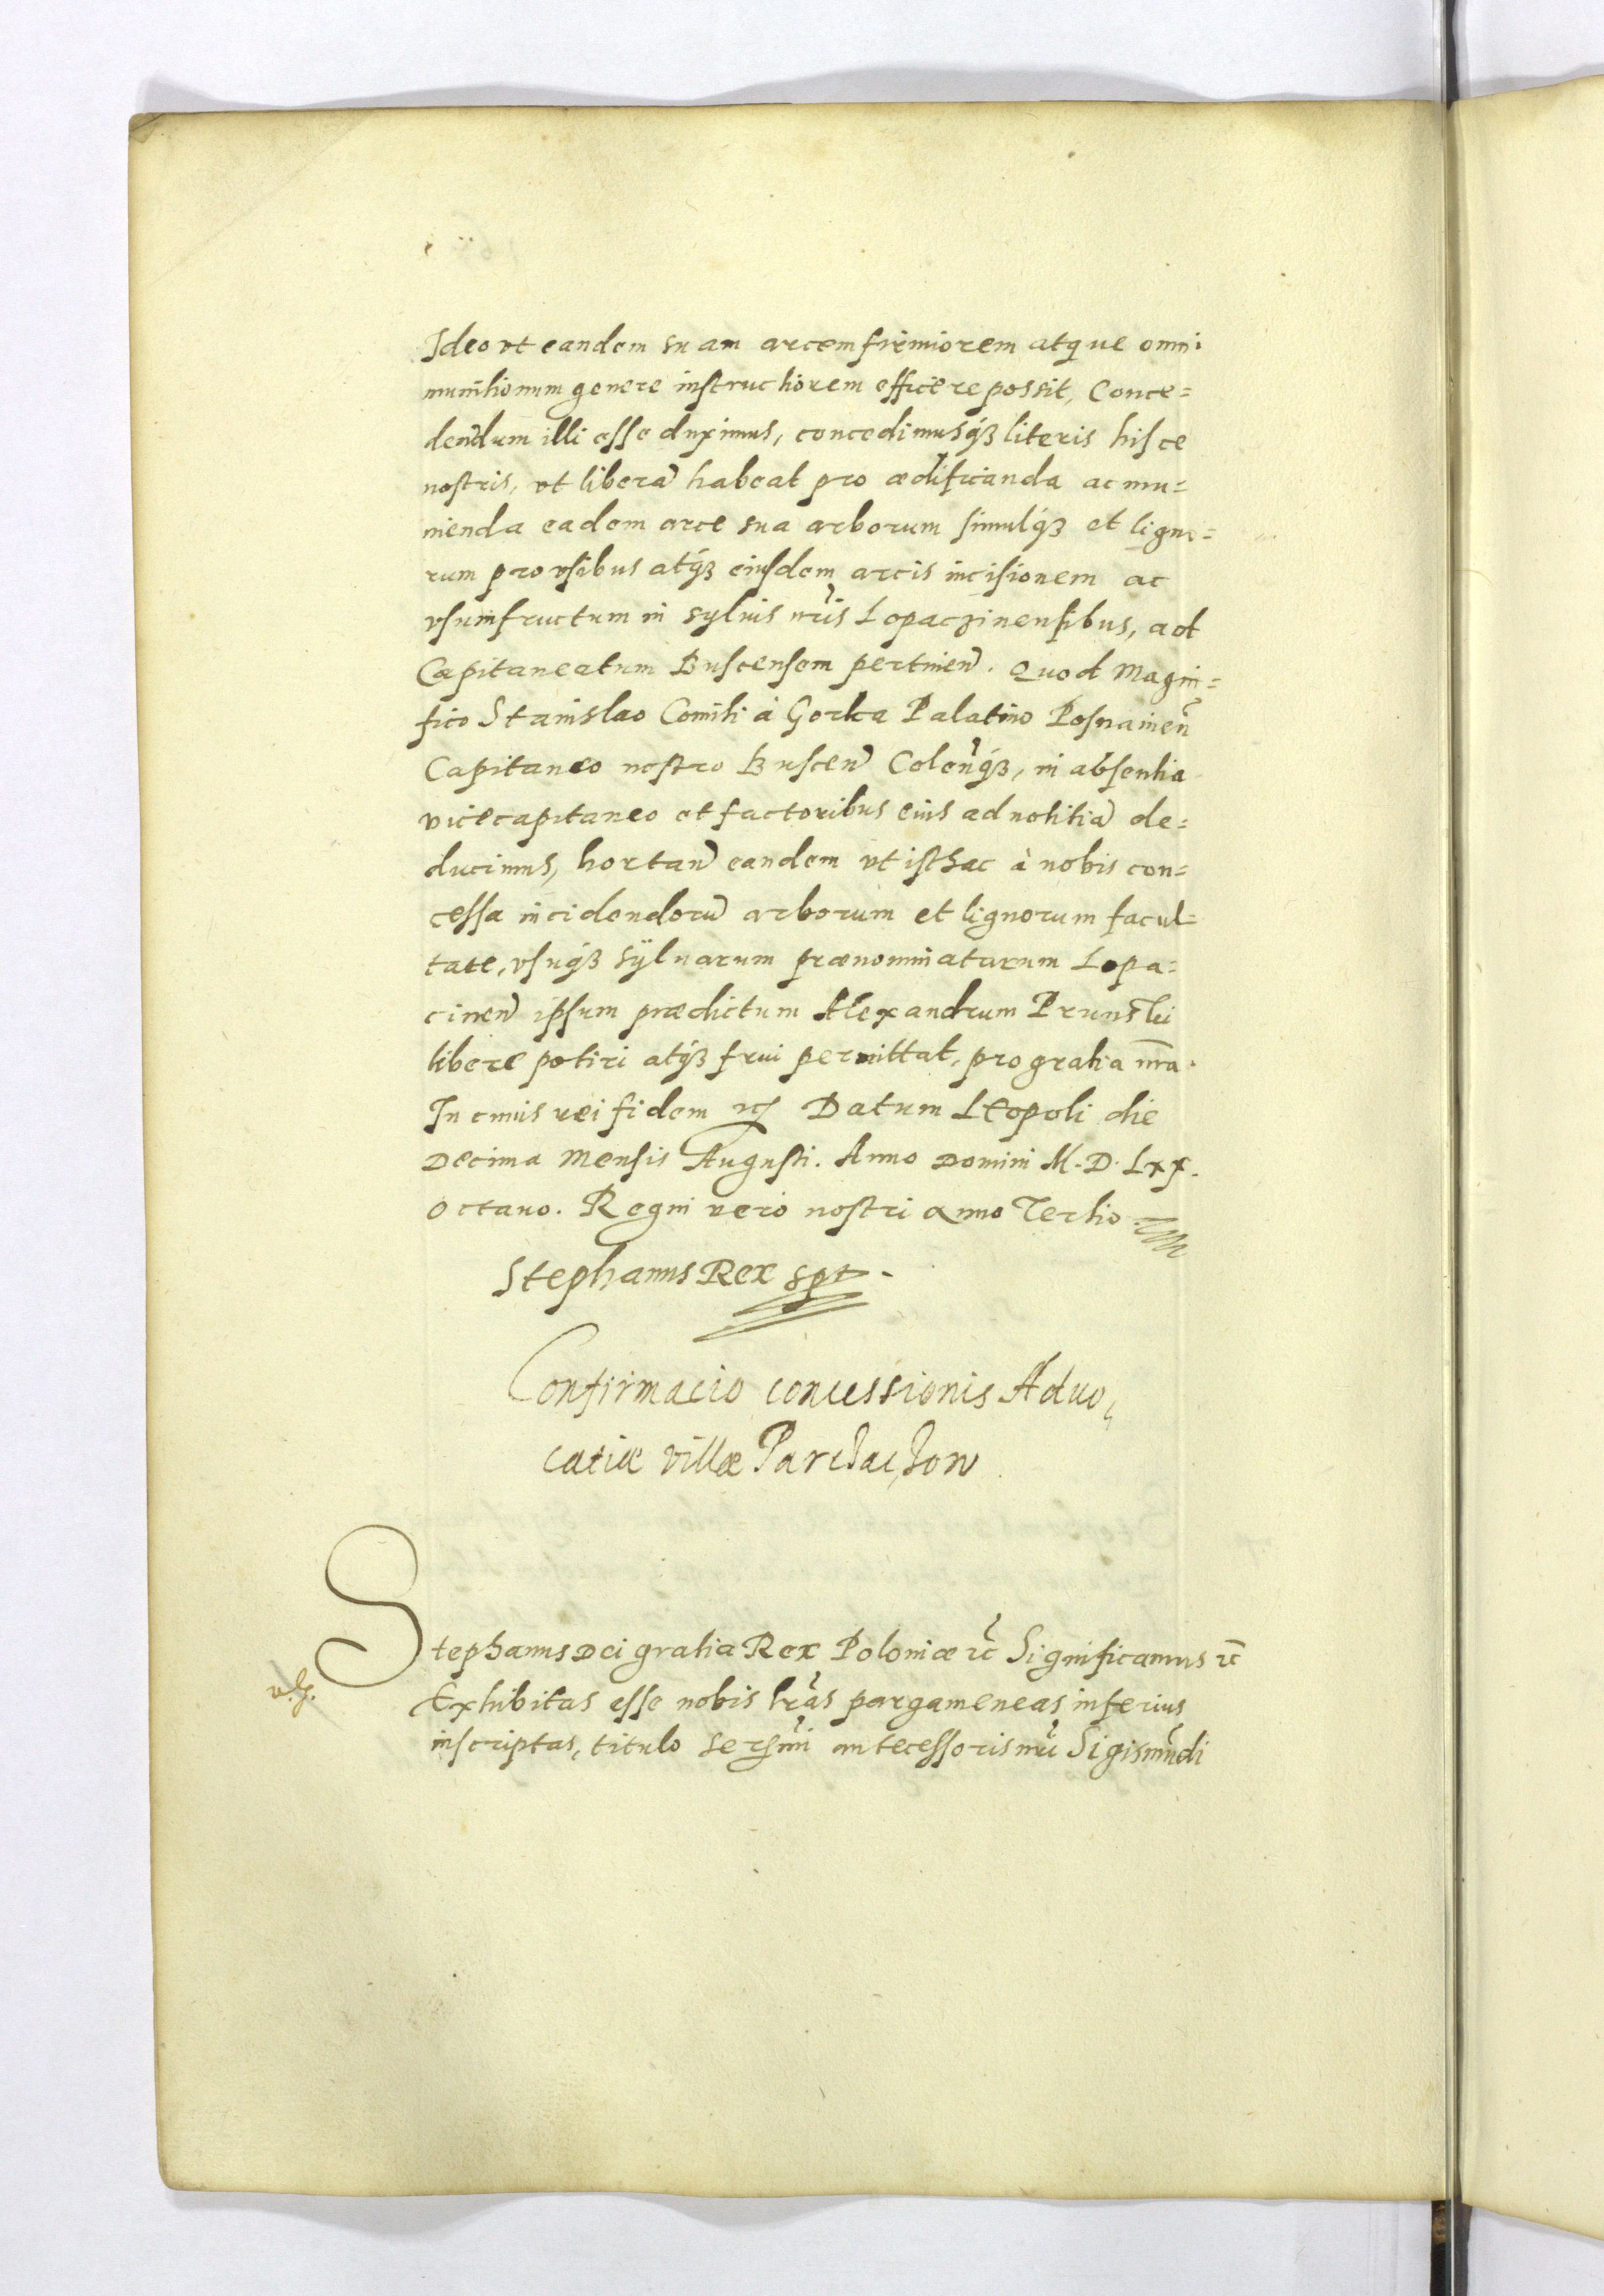 Ideo vt eandem suam arcem firmiorem atque omni
munitionum genere instructiorem efficere possit, Conce=
dendum illi esse duximus, concedimusq́ꝫ literis hisce
nostris, vt liberã habeat pro ædificanda ac mu=
nienda eadem arce sua arborum simulq́ꝫ et ligno=
rum pro vsibus atq́ꝫ eiusdem arcis incisionem ac
vsumfructum in syluis nr̃is Lopaczinensibus, ad
Capitaneatum Buscensem pertineñ. Quod Magni=
fico Stanislao Comiti à Gorka Palatino Posnanieñ
Capitaneo nostro Busceñ Coleñq́ꝫ, in absentia
vicecapitaneo et factoribus eius ad notitiã de=
ducimus, hortañ eandem vt isthac à nobis con=
cessa incidendorũ arborum et lignorum facul=
tate, vsuq́ꝫ sÿluarum prænominatarum Lopa=
cineñ ipsum prædictum Alexandrum Prunski
libere potiri atq́ꝫ frui permittat, pro gratia nr̃a.
In cuius rei fidem ꝛc̃ Datum Leopoli die
Decima Mensis Augusti. Anno Domini M. D. Lxx.
Octauo. Regni vero nostri anno Tertio
Stephanus Rex spt.
Confirmacio concessionis Aduo,
catiæ villæ Parchaczow
Stephanus Dei gratia Rex Poloniæ ꝛc̃ Significamus ꝛc̃
Exhibitas esse nobis lr̃as pargameneas inferius
inscriptas, titulo Serm̃i antecessoris nr̃i Sigismũdi